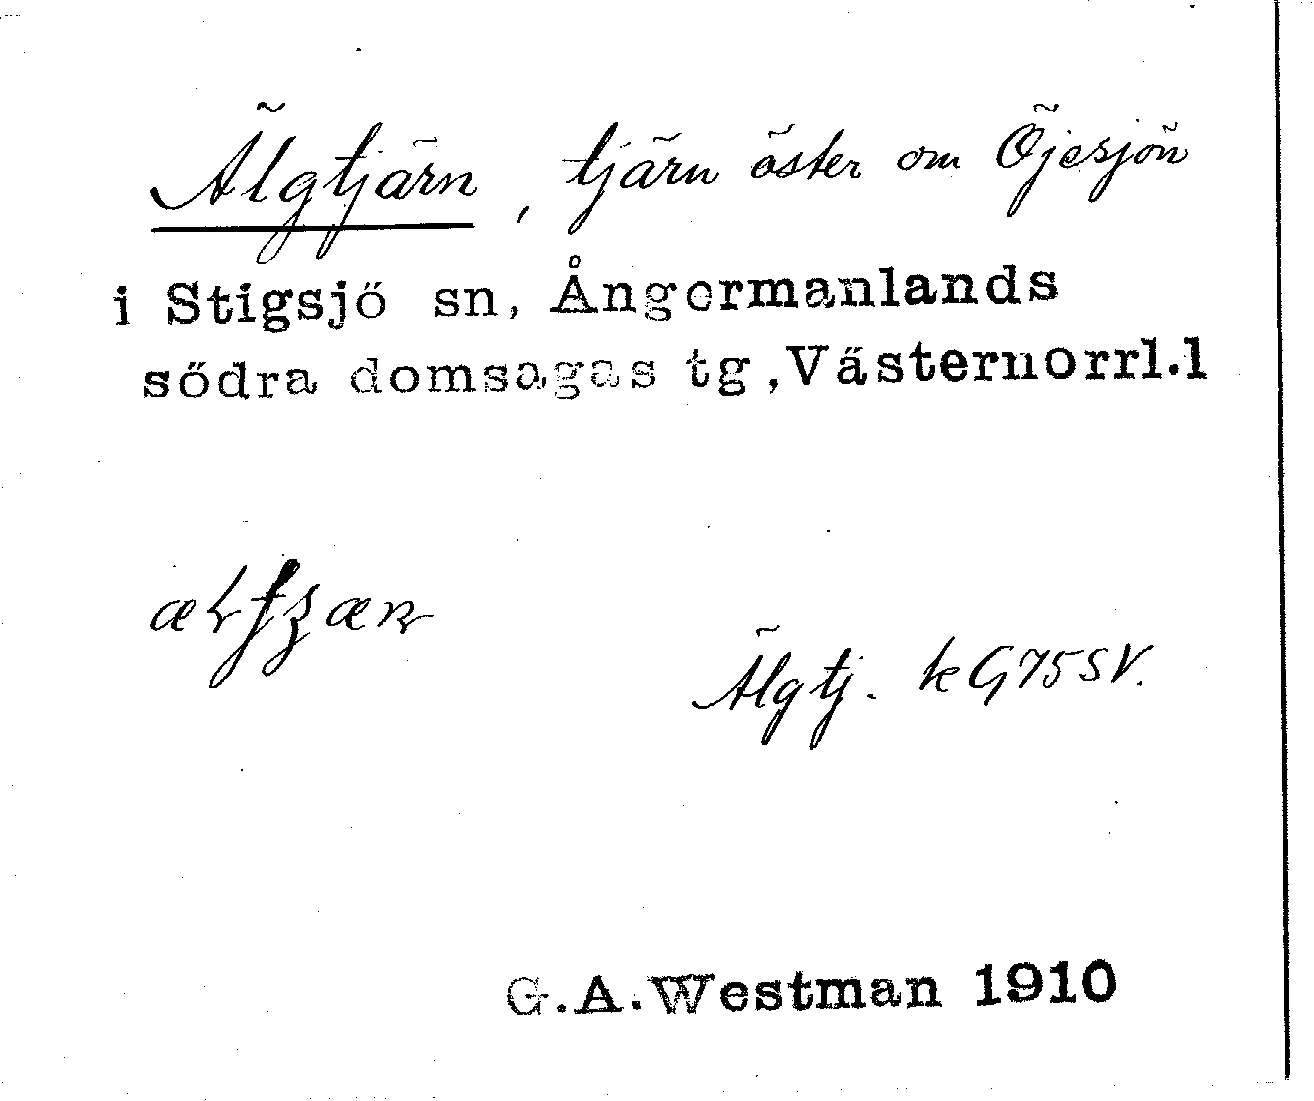 Älgtjärn, tjärn öster om Öjesjön
i Stigsjö sn, Ångermanlands
södra domsagas tg, Västernorrl.l
Älgtj. k G 75 SV.
G.A.Westman 1910